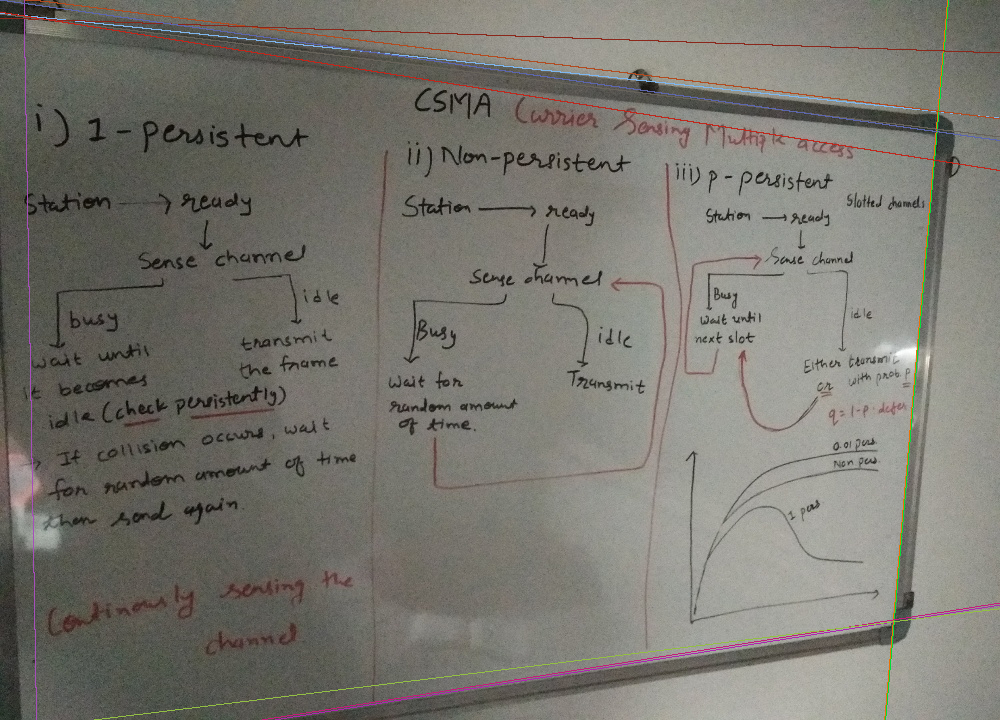 CSMA Carrier Sensing Multiple access
i) 1-persistent
Station → ready
Sense channel
busy
idle
wait until
it becomes
idle (check persistently)
transmit
the frame
→ If collision occurs, wait
for random amount of time
then send again.
Continously sensing the
channel
ii) Non-persistent
Station → ready
Sense channel
Busy
idle
wait for
random amount
of time.
Transmit
iii) p-persistent
Slotted channels
Station → ready
Sense channel
Busy
idle
wait until
next slot
Either transmit
or with prob. p
q = 1-p. defer
0.01 pers.
Non pers.
1 pers